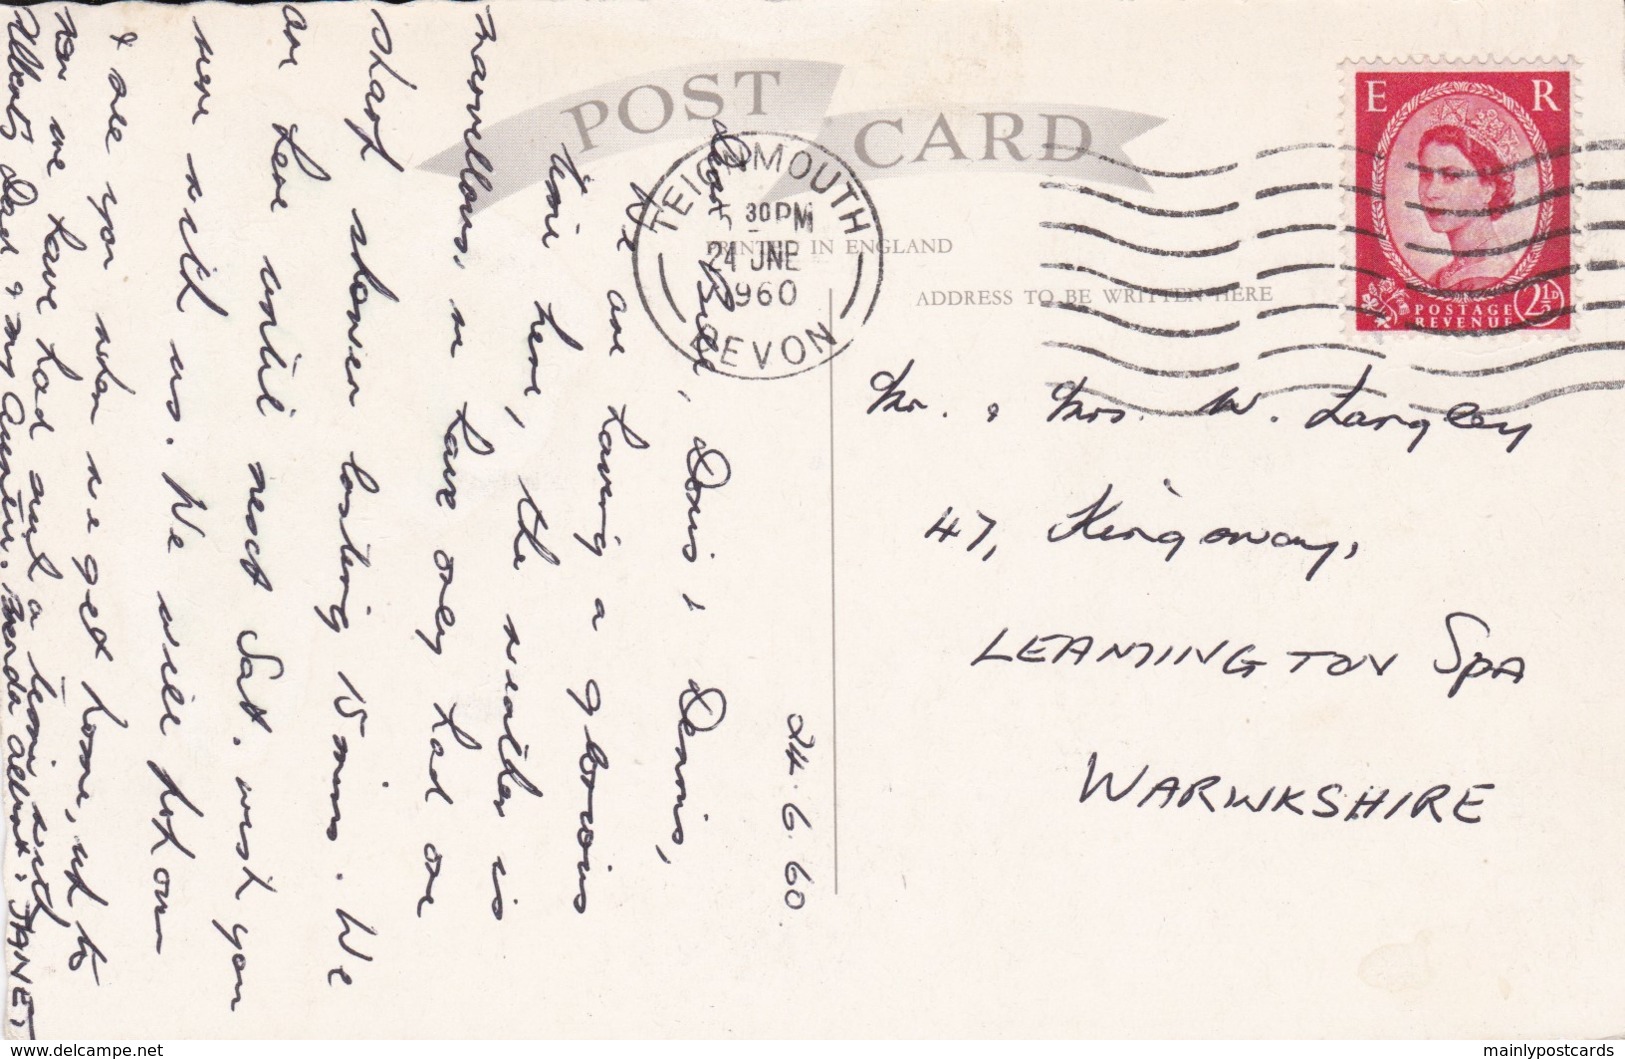 POST CARD
PRINTED IN ENGLAND
ADDRESS TO BE WRITTEN HERE
TEIGNMOUTH
5 30 PM
24 JNE
1960
DEVON
E R
POSTAGE
REVENUE
2½D
24.6.60
Dear Bill, Doris & Dennis,
We are having a glorious
time here, the weather is
marvellous, we have only had one
sharp shower lasting 15 mins. We
are here until next Sat. wish you
were with us. We will pop over
& see you when we get home, up to
now we have had such a time with
Albert, Dad & my Auntie. Brenda Albert & JANET
Mr. & Mrs. W. Langley
47, Kingsway,
LEAMINGTON SPA
WARWKSHIRE
www.delcampe.net
mainlypostcards